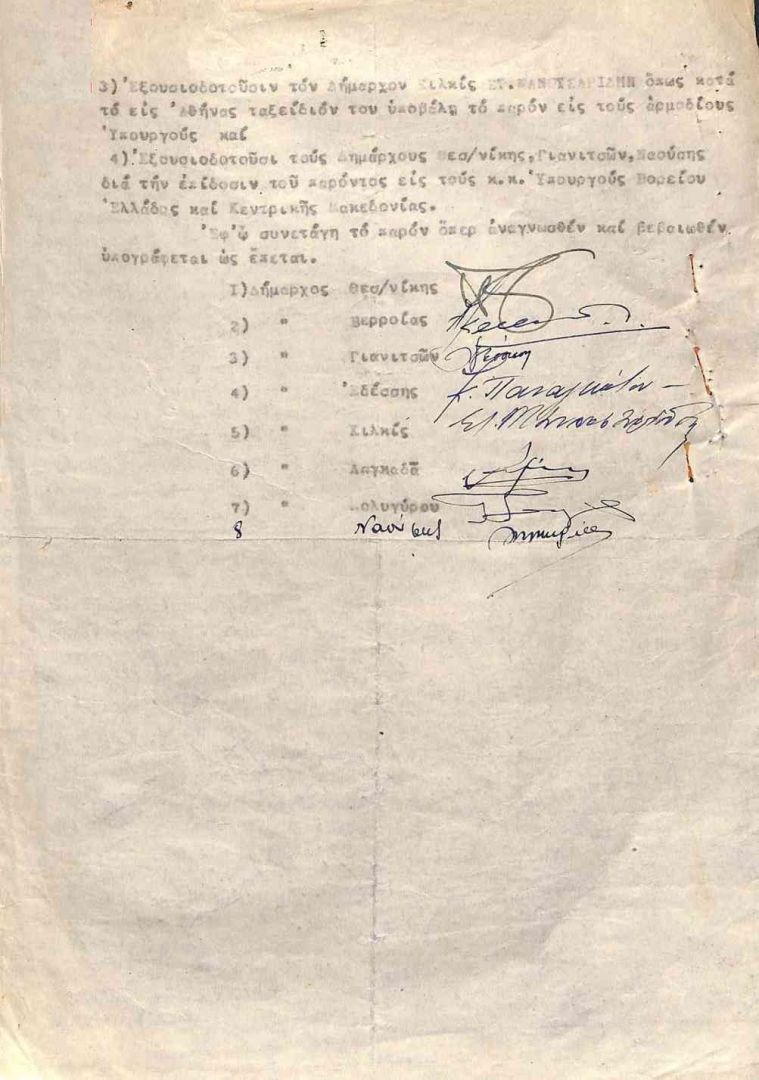 2
3)Ἐξουσιοδοτοῦσιν τόν Δήμαρχον Κιλκίς ΣΤ. ὅπως κατά
τό εἰς Ἀθήνας ταξείδιόν του ὑποβάλῃ τό παρόν εἰς τούς ἁρμοδίους
Ὑπουργούς καί
4)Ἐξουσιοδοτοῦσι τούς Δημάρχους Θεσ/νίκης,Γιανιτσῶν,Ναούσης
διά τήν ἐπίδοσιν τοῦ παρόντος εἰς τούς κ.κ.Ὑπουργούς Βορείου
Ἑλλάδος καί Κεντρικῆς Μακεδονίας.
Ἐφ'ᾧ συνετάγη τό παρόν ὅπερ ἀναγνωσθέν καί βεβαιωθέν
ὑπογράφεται ὡς ἕπεται.
1)Δήμαρχος Θεσ/νίκης
2) " Βερροίας
3) " Γιανιτσῶν
4) " Ἐδέσσης
5) " Κιλκίς
6) " Λαγκαδᾶ
7) " Πολυγύρου
8 Ναούσης